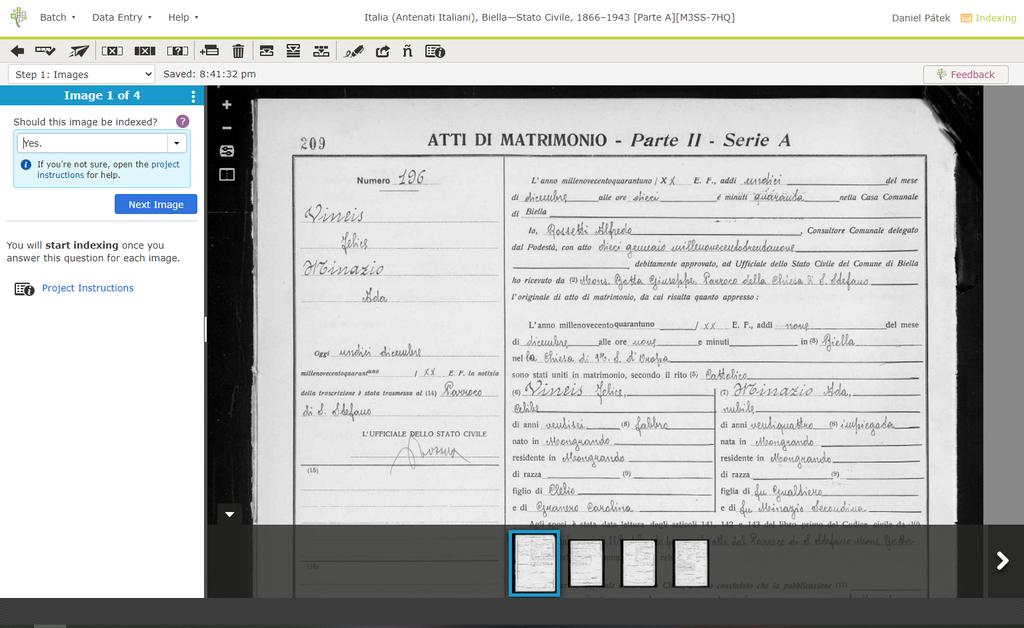 Batch
Data Entry
Help
Italia (Antenati Italiani), Biella—Stato Civile, 1866–1943 [Parte A][M3SS-7HQ]
Daniel Pátek
Indexing
Step 1: Images
Saved: 8:41:32 pm
Feedback
Image 1 of 4
Should this image be indexed?
Yes.
If you're not sure, open the project
instructions for help.
Next Image
You will start indexing once you
answer this question for each image.
Project Instructions
209
ATTI DI MATRIMONIO - Parte II - Serie A
Numero 196
Vineis
Felice
Minazio
Ada
Oggi undici dicembre
millenovecentoquarantuno / XX E. F. la notizia
della trascrizione è stata trasmessa al (14) Parroco
di S. Stefano
L'UFFICIALE DELLO STATO CIVILE
(15)
(16)
L'anno millenovecentoquarantuno / XX E. F., addì undici del mese
di dicembre alle ore dieci e minuti quaranta nella Casa Comunale
di Biella
Io, Rossetti Alfredo, Consultore Comunale delegato
dal Podestà, con atto dieci gennaio millenovecentotrentanove
debitamente approvato, ad Ufficiale dello Stato Civile del Comune di Biella
ho ricevuto da (2) Mons. Botta Giuseppe, Parroco della Chiesa di S. Stefano
l'originale di atto di matrimonio, da cui risulta quanto appresso :
L'anno millenovecentoquarantuno / XX E. F., addì nove del mese
di dicembre alle ore nove e minuti in (3) Biella
nel la Chiesa di M. S. d'Oropa
sono stati uniti in matrimonio, secondo il rito (5) Cattolico
(6) Vineis Felice,
celibe
di anni ventisei (8) fabbro
nato in Mongrando
residente in Mongrando
di razza (9)
figlio di Clelio
e di Granero Carolina
(7) Minazio Ada,
nubile
di anni ventiquattro (8) impiegata
nata in Mongrando
residente in Mongrando
di razza (9)
figlia di fu Gualtiero
e di fu Minazio Secondina
Agli sposi è stata data lettura degli articoli 141, 142 e 143 del libro primo del Codice civile
dal Parroco di S. Stefano Mons. Botta
constatato che la pubblicazione (12)